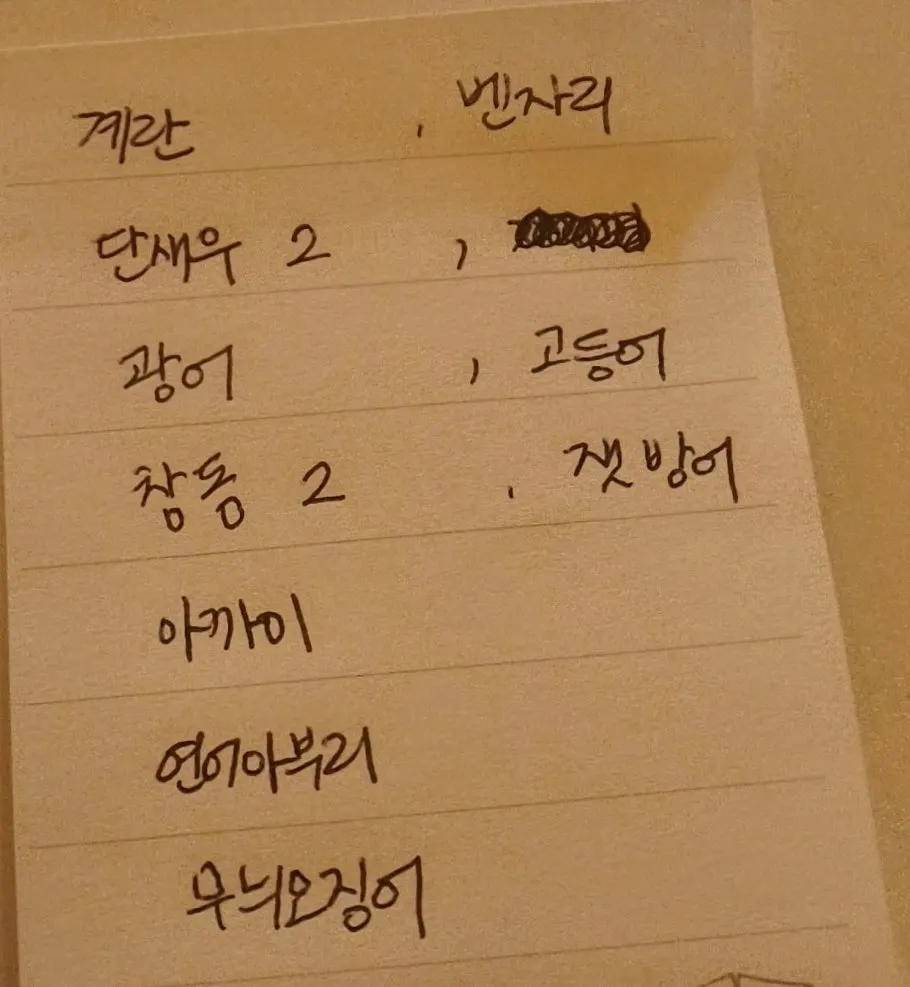 계란 , 벤자리
단새우 2 ,
광어 , 고등어
참돔 2 , 잿방어
아까이
연어아부리
무늬오징어